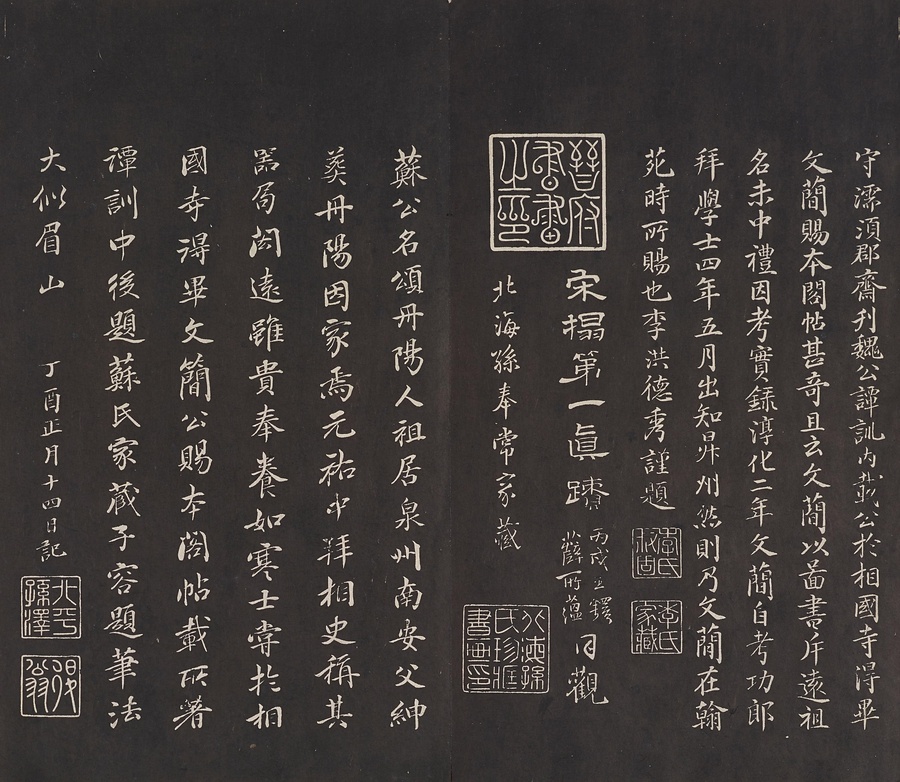 守濡須郡齋刊魏公譚訓內載公於相國寺得畢
文簡賜本閣帖甚奇且云文簡以圖書斥遠祖
名未中禮因考實錄淳化二年文簡自考功郎
拜學士四年五月出知昇州然則乃文簡在翰
苑時所賜也李洪德秀謹題
李氏
家藏
晉府
書畫
之印
宋搨第一真蹟
丙戌王鐸
薛所蘊
同觀
北海孫奉常家藏
北海孫
氏珍藏
書畫印
蘇公名頌丹陽人祖居泉州南安父紳
葬丹陽因家焉元祐中拜相史稱其
器局閎遠雖貴奉養如寒士嘗於相
國寺得畢文簡公賜本閣帖載所著
譚訓中後題蘇氏家藏子容題筆法
大似眉山
丁酉正月十四日記
北平
孫澤
退翁